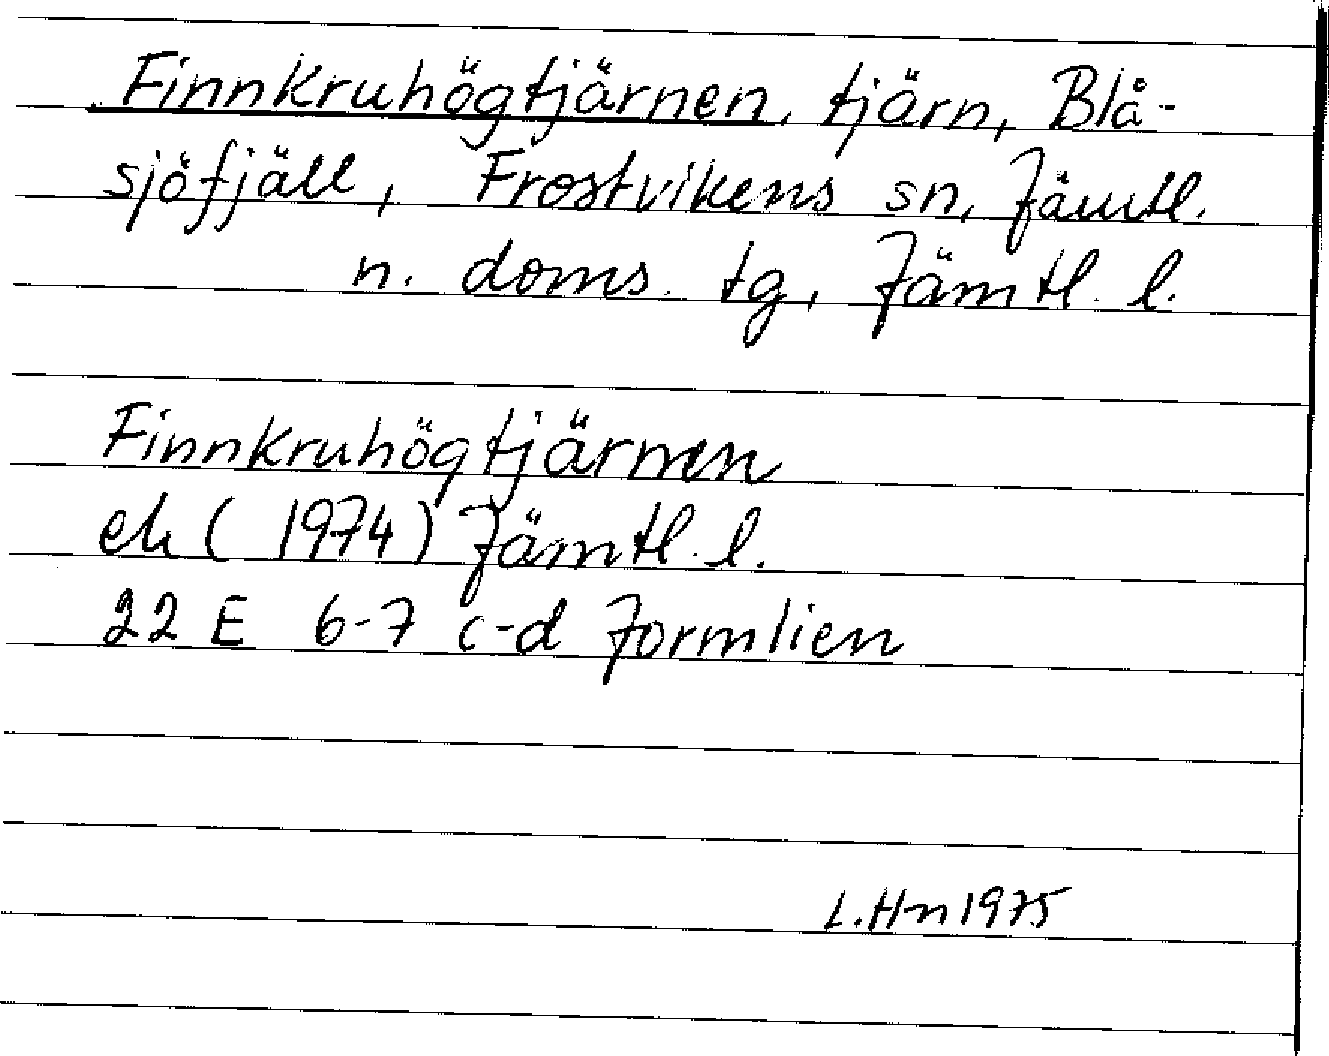 Finnkruhögtjärnen, tjärn, Blå-
sjöfjäll, Frostvikens sn, Jämtl.
n. doms. tg, Jämtl. l.
Finnkruhögtjärnen
ek (1974) Jämtl. l.
22 E 6-7 c-d Jormlien
L.Hn 1975